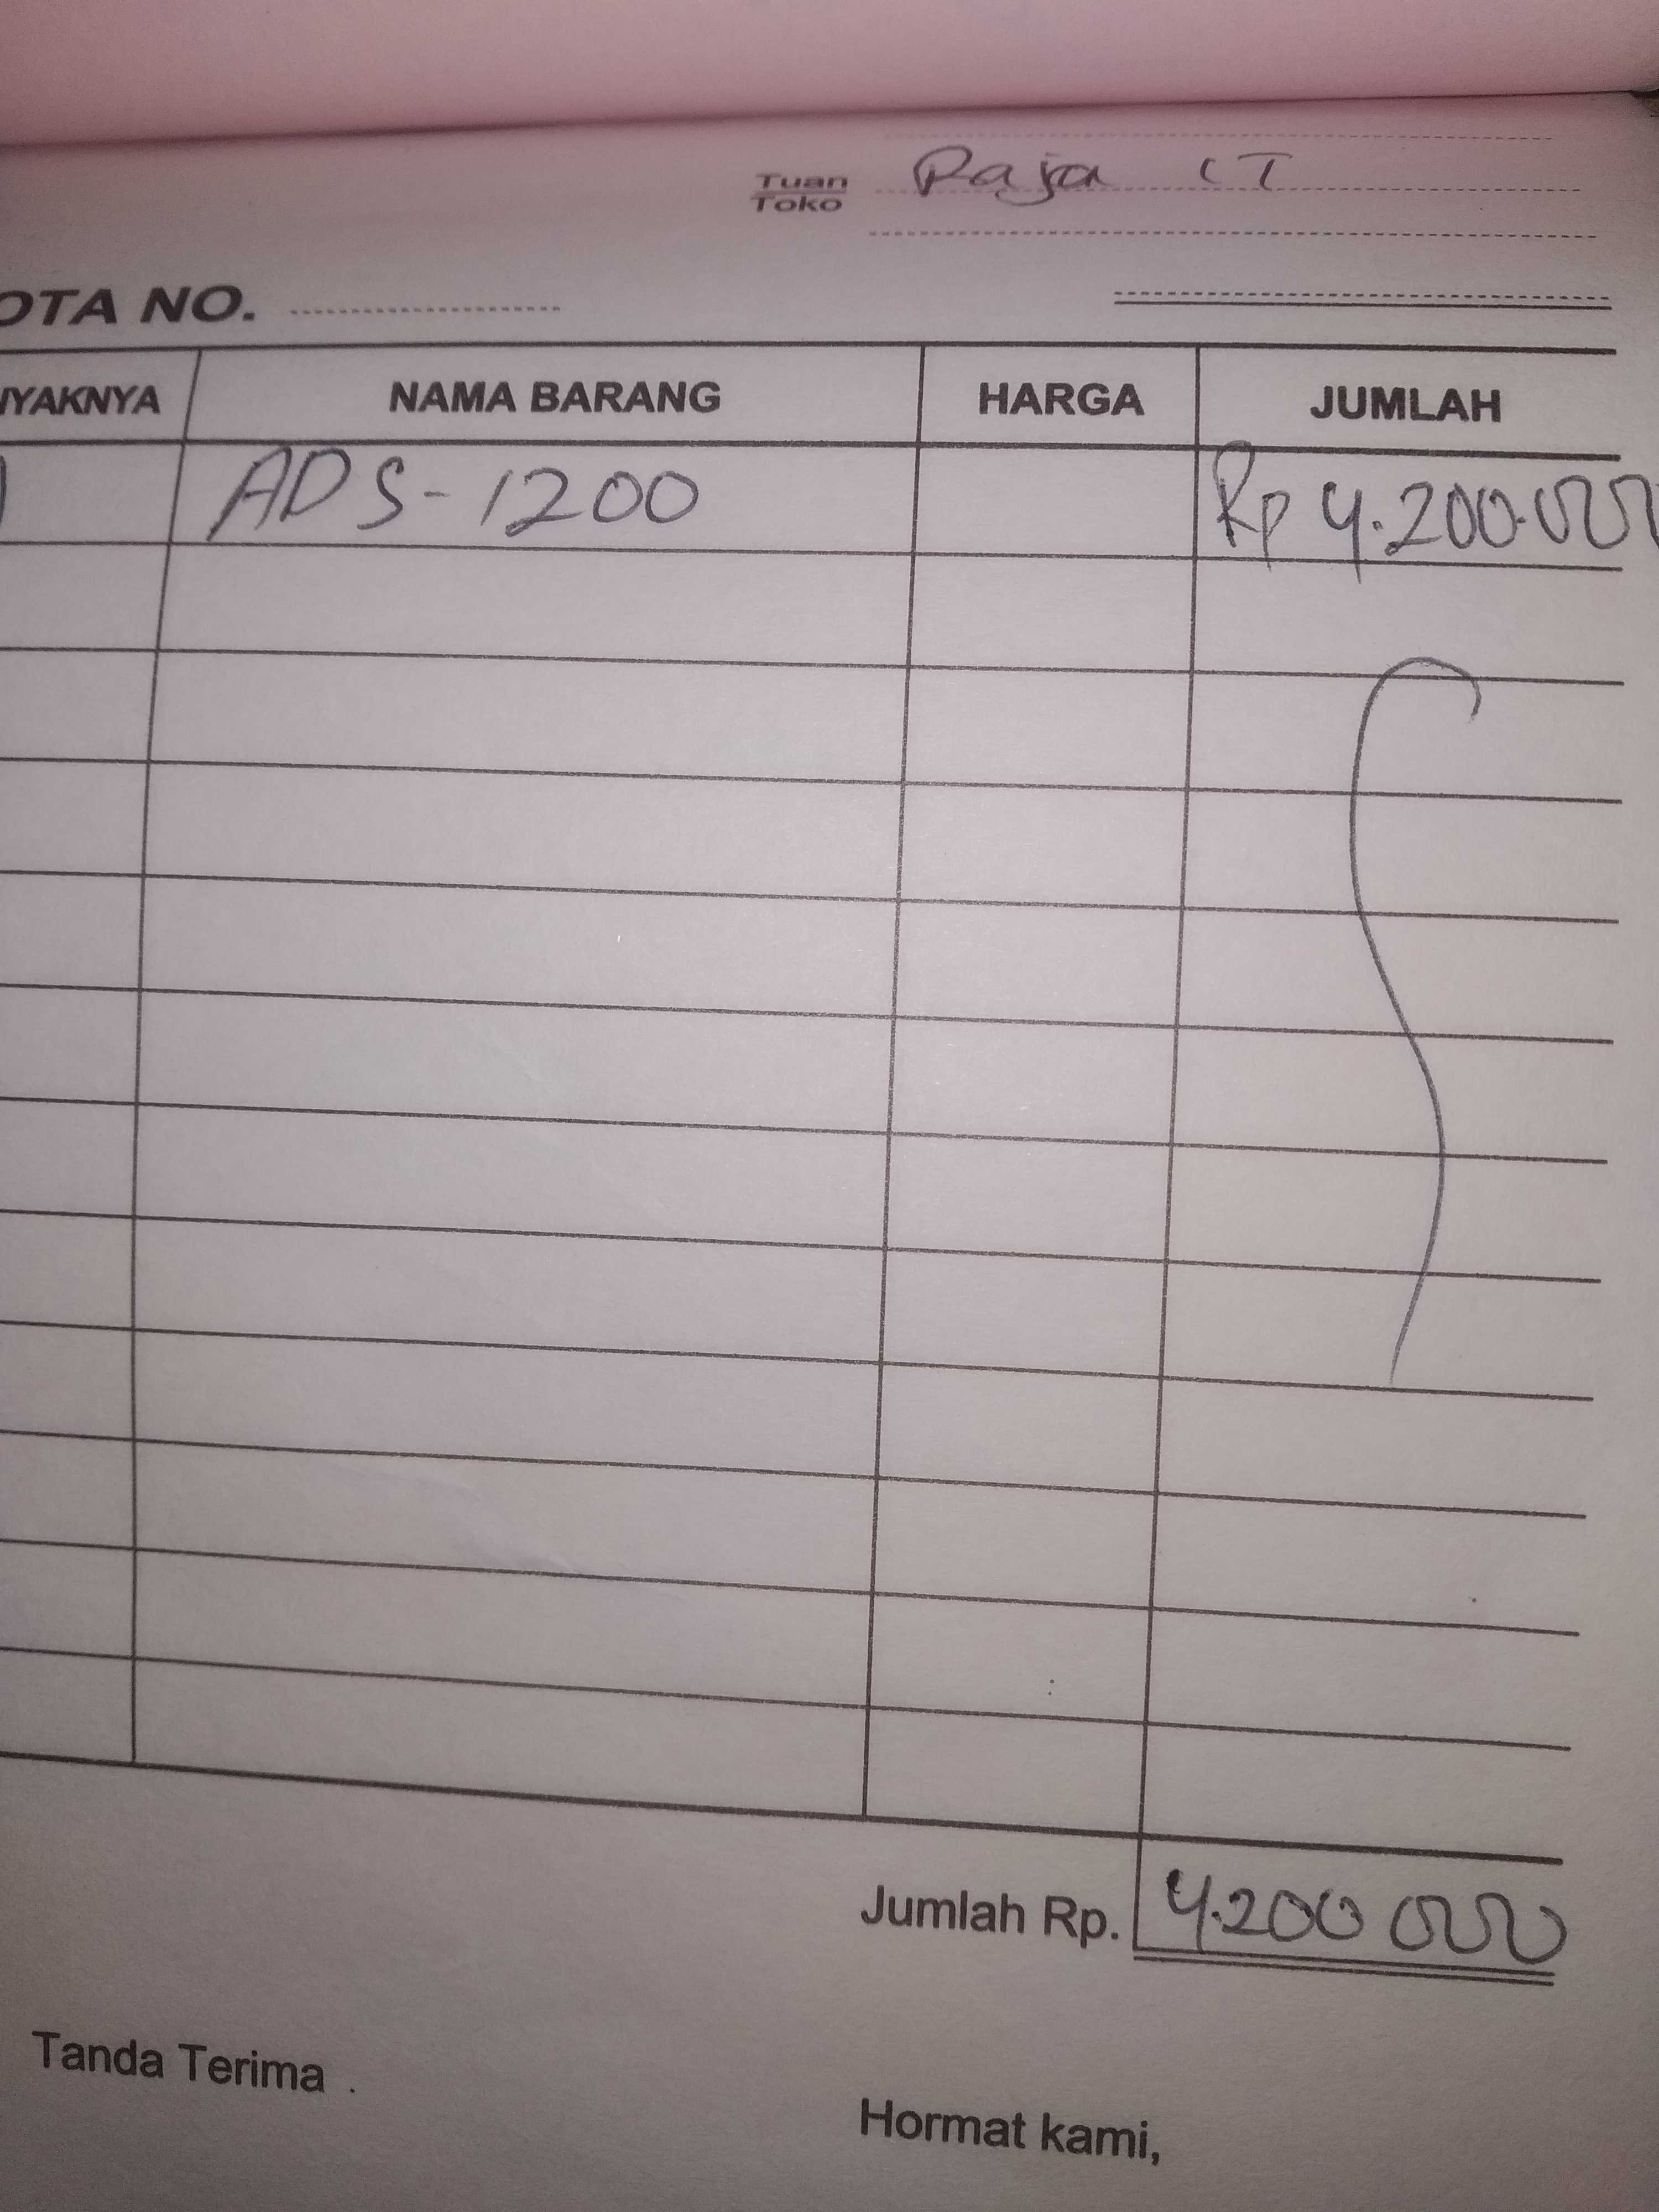 Tuan Raja IT
Toko
OTA NO.
NYAKNYA NAMA BARANG HARGA JUMLAH
1 ADS-1200 Rp 4.200.000
Jumlah Rp. 4.200 000
Tanda Terima
Hormat kami,